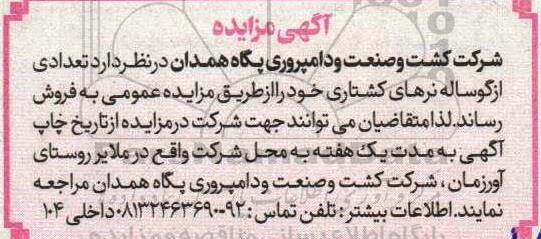 آگهی مزایده
شرکت کشت وصنعت ودامپروری پگاه همدان درنظر دارد تعدادی
ازگوساله نرهای کشتاری خود راازطریق مزایده عمومی به فروش
رساند.لذا متقاضیان می توانند جهت شرکت درمزایده ازتاریخ چاپ
آگهی به مدت یک هفته به محل شرکت واقع در ملایر روستای
آورزمان ، شرکت کشت وصنعت ودامپروری پگاه همدان مراجعه
نمایند.اطلاعات بیشتر : تلفن تماس : ۹۲-۰۸۱۳۲۴۶۳۶۹۰داخلی ۱۰۴